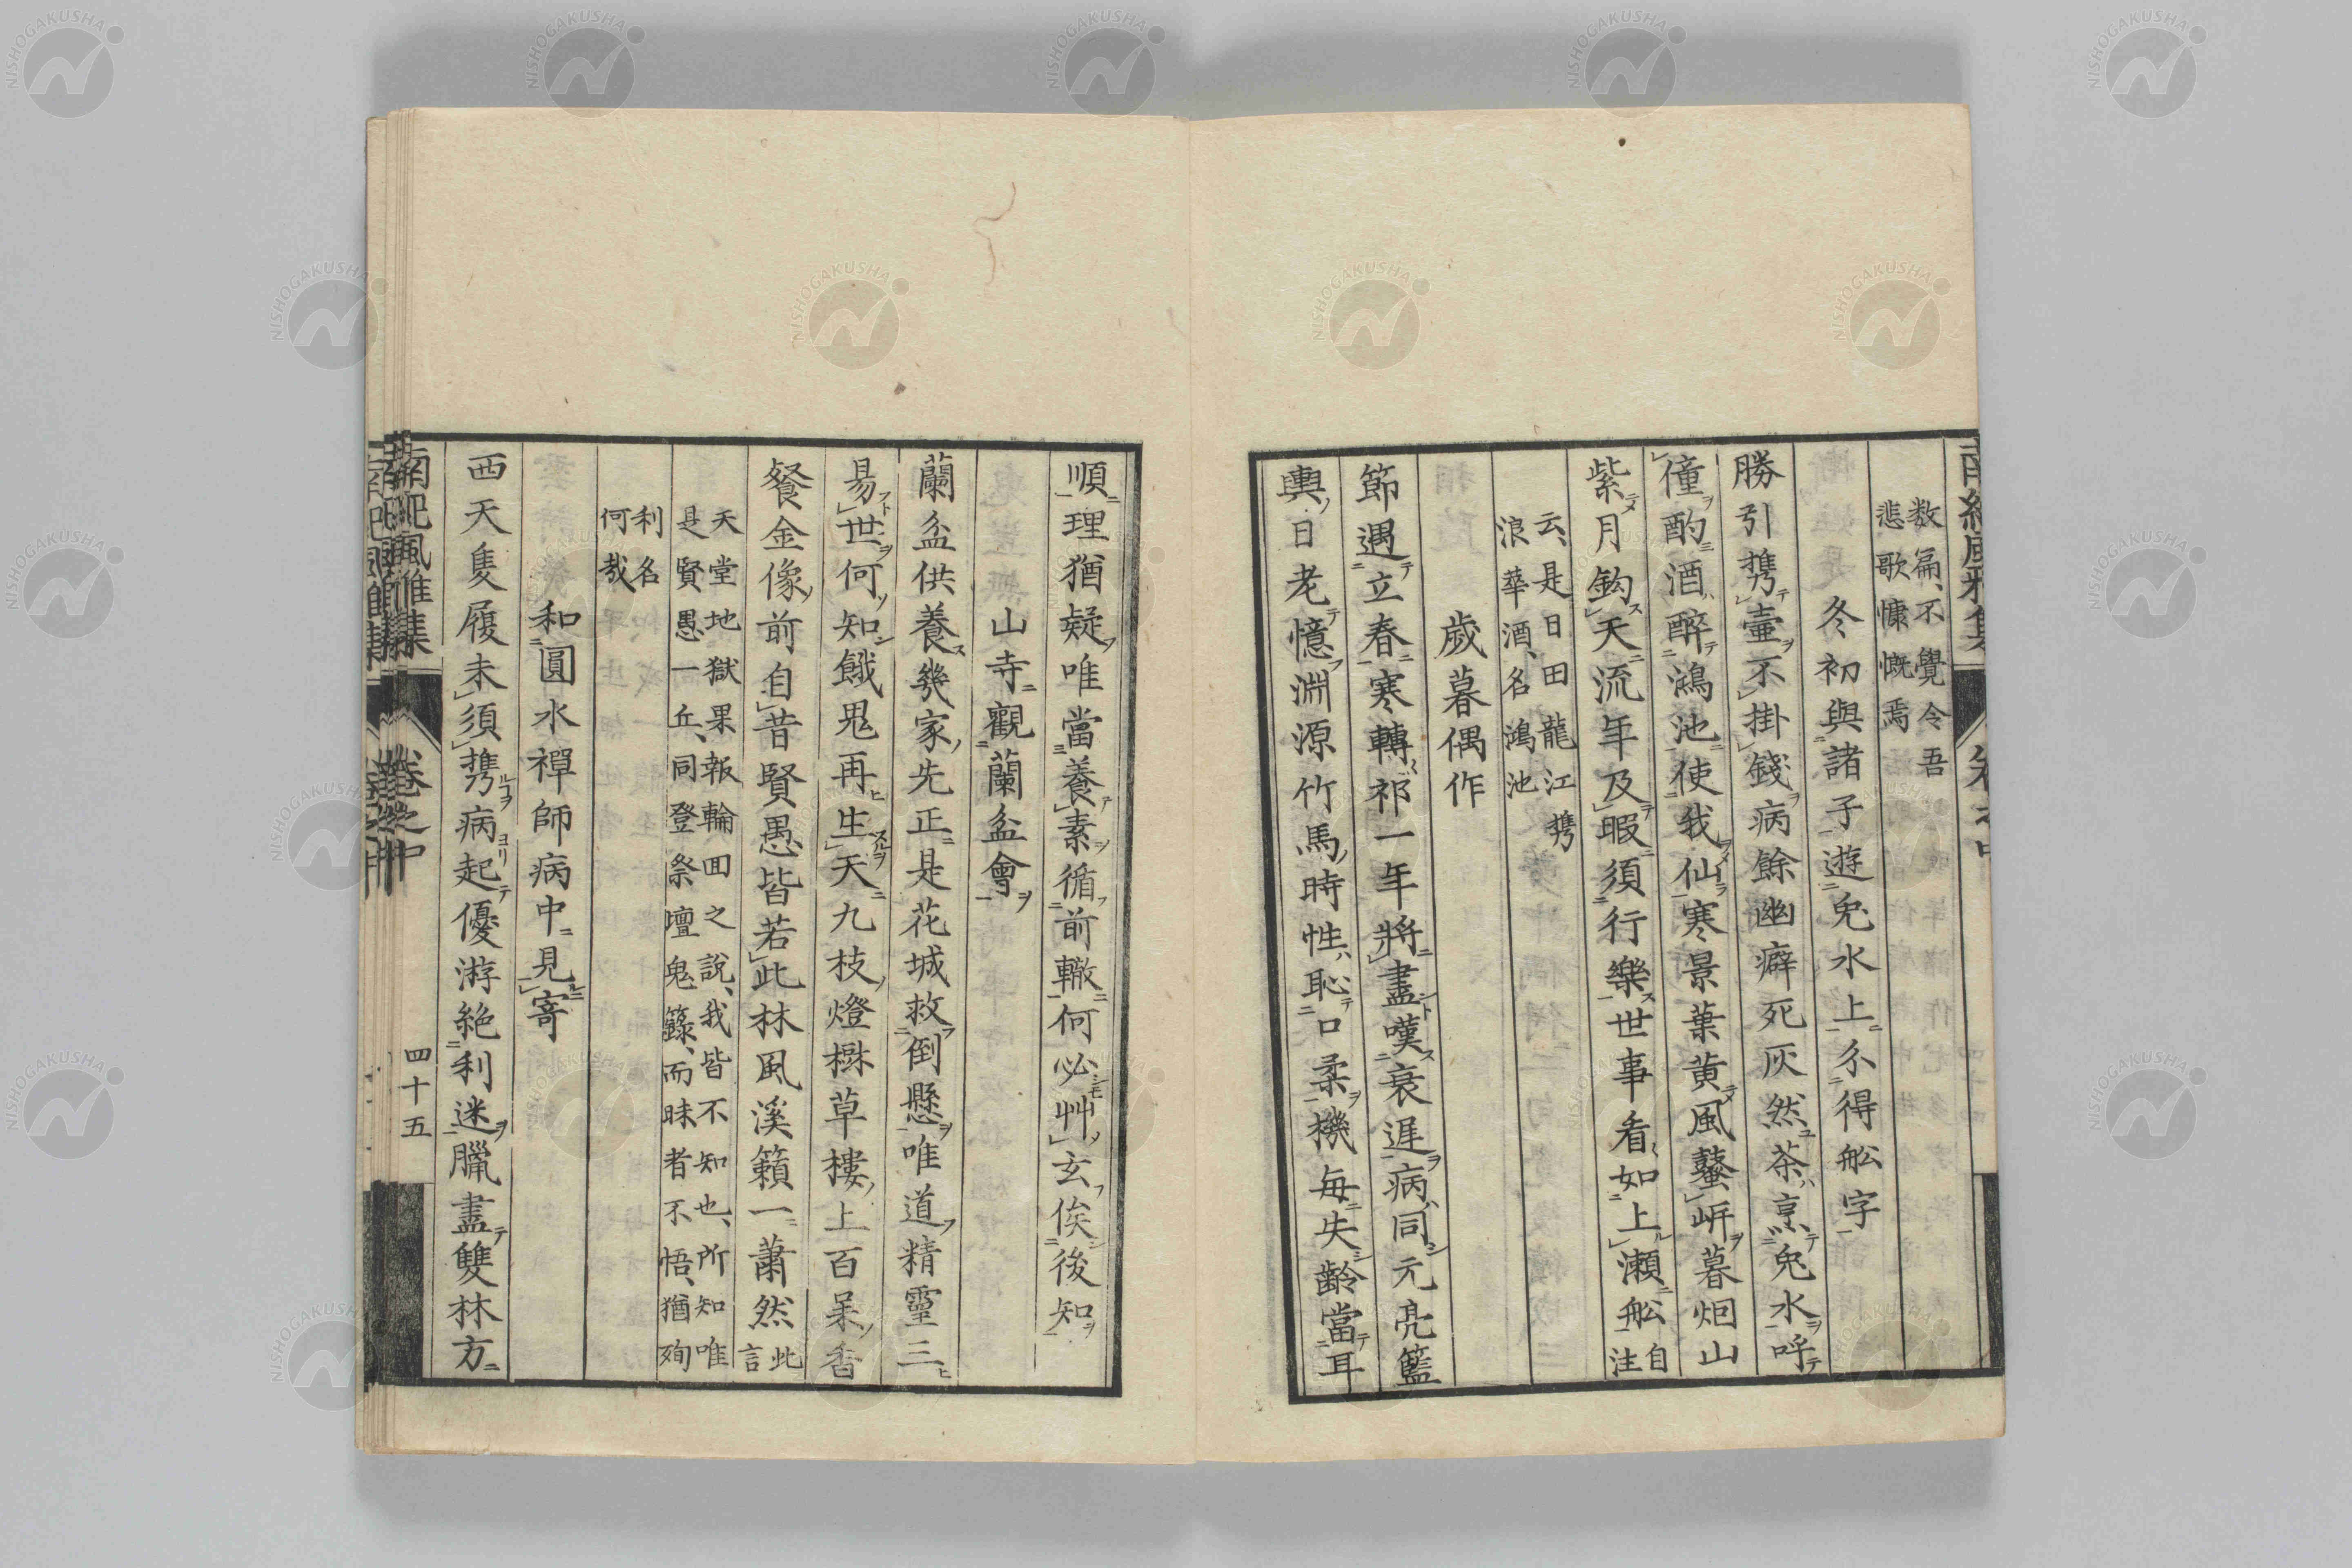 数篇、不覺令吾
悲歌慷慨焉
冬初與諸子遊兔水上分得舩字
勝引攜壷不掛錢病餘幽癖死灰然茶烹兔水呼
僮酌酒醉鴻池使我仙寒景葉黄風蟄岍暮烟山
紫月鈎天流年及暇須行樂世事看如上瀬舩自注
云、是日田龍江攜
浪華酒、名鴻池
歳暮偶作
節遇立春寒轉祁一年將盡嘆衰遅病同元亮籃
輿日老憶淵源竹馬時性恥口柔機毎失齢當耳
順理猶疑唯當養素循前轍何必艸玄俟後知
山寺觀蘭盆會
蘭盆供養幾家先正是花城救倒懸唯道精靈三
易世何知餓鬼再生天九枝燈樹草樓上百呆香
餐金像前自昔賢愚皆若此林風溪籟一蕭然此言
天堂地獄果報輪囘之說、我皆不知也、所知唯
是賢愚一丘、同登祭壇鬼籙、而昧者不悟、猶殉
利名
何哉
和圓水禪師病中見寄
西天隻履未須攜病起優游絶利迷臘盡雙林方
南紀風雅集 卷之中 四十五
NISHOGAKUSHA